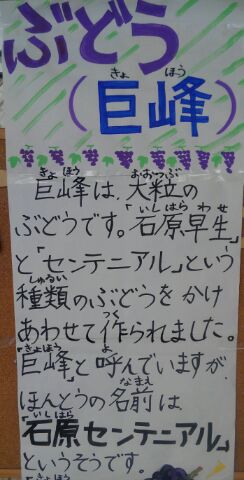 ぶどう
きょ ほう
(巨峰)
きょ ほう おおつぶ
巨峰は、大粒の
いしはら わせ
ぶどうです。「石原早生」
と「センテニアル」という
しゅるい
種類のぶどうをかけ
つく
あわせて作られました。
きょほう よ
「巨峰」と呼んでいますが、
なまえ
ほんとうの名前は
いしはら
「石原センテニアル」
というそうです。
きょほう